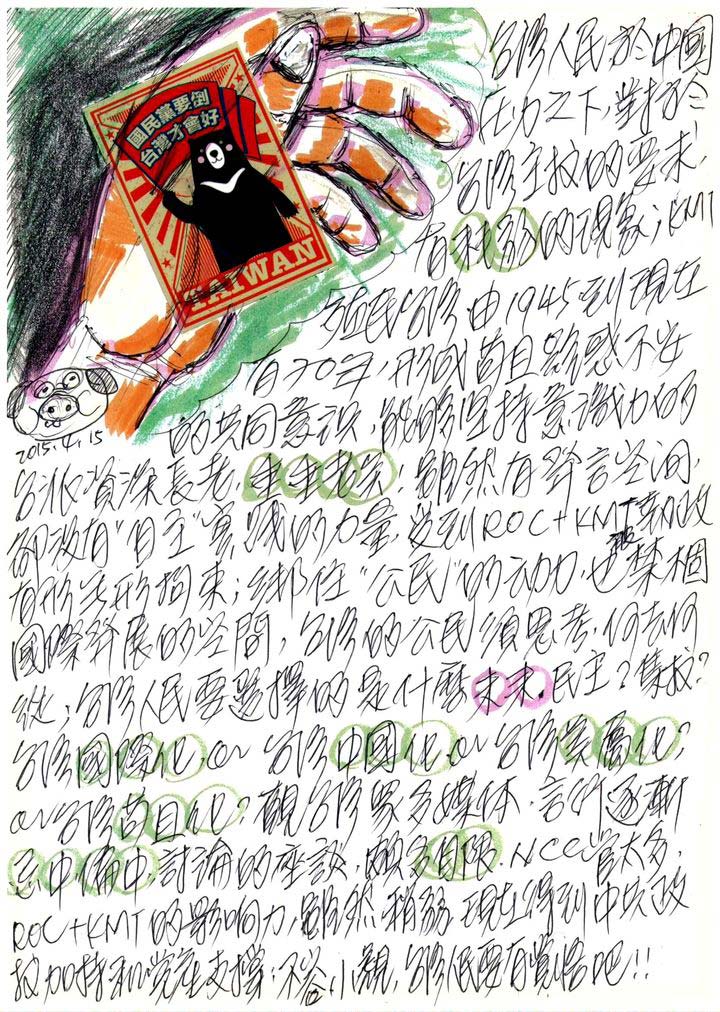 國民黨要倒
台灣才會好
TAIWAN
2015.4.15
台灣人民於中國
壓力之下,對於
台灣主权的要求,
有 的現象;KMT
殖民台灣由1945到現在
有70年,形成苟且 惑不安
的共同意识,能夠坚持意識力的
台北資深長老, ,雖然有發言空间,
卻沒有"自主"實踐的力量,受到ROC+KMT執政
有形無形拘束;綁住"公民"的动力,也禁梱
國際發展的空間,台灣的公民須思考,何去何
從;台灣人民要選擇的是什麼未来,民主?集权?
台灣國際化,or 台灣中國化,or 台灣 化?
or 台灣苟且化?觀台灣眾多媒体,言論逐漸
忌中, 中,討論的座談,頗多自限.NCC管太多,
ROC+KMT的影响力,雖然稍弱,現在得到中共政
权加持和党產支撐;不容小覷,台灣人民要有覺悟吧!!